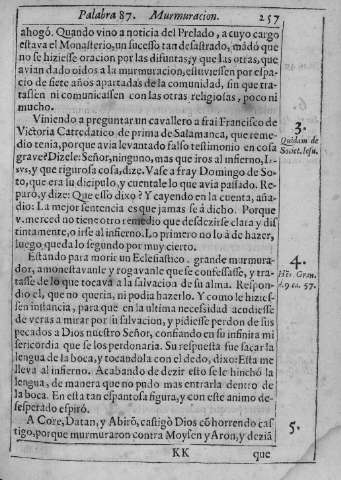 Palabra 87. Murmuracion. 257
ahogó. Quando vino a noticia del Prelado, a cuyo cargo
estava el Monasterio, un sucesso tan desastrado, mãdó que
no se hiziesse oracion por las difuntas; y que las otras, que
avian dado oidos a la murmuracion, estuviessen por espa-
cio de siete años apartadas de la comunidad, sin que tra-
tassen ni comunicassen con las otras religiosas, poco ni
mucho.
Viniendo a preguntar un cavallero a frai Francisco de
Victoria Catredatico de prima de Salamanca, que reme-
dio tenia, porque avia levantado falso testimonio en cosa
grave? Dizele: Señor, ninguno, mas que iros al infierno, Ie-
svs, y que rigurosa cosa, dize. Vase a fray Domingo de So-
to, que era su dicipulo, y cuentale lo que avia passado. Re-
paró, y dize: Que esso dixo? Y cayendo en la cuenta, aña-
dio: La mejor sentencia es que jamas se á dicho. Porque
v. merced no tiene otro remedio que desdezirse clara y dis
tintamente, o irse al infierno. Lo primero no lo à de hazer,
luego queda lo segundo por muy cierto.
3.
Quidam de
Societ. Iesu.
Estando para morir un Eclesiastico grande murmura-
dor, amonestavanle y rogavanle que se confessasse, y tra-
tasse de lo que tocava a la salvacion de su alma. Respon-
dio el, que no queria, ni podia hazerlo. Y como le hizies-
sen instancia, para que en la ultima necesidad acudiesse
de veras a mirar por su salvacion, y pidiesse perdon de sus
pecados a Dios nuestro Señor, confiando en su infinita mi
sericordia que se los perdonaria. Su respuesta fue sacar la
lengua de la boca, y tocandola con el dedo, dixo: Esta me
lleva al infierno. Acabando de dezir esto se le hinchó la
lengua, de manera que no pudo mas entrarla dentro de
la boca. En esta tan espantosa figura, y con este animo de-
sesperado espiró.
4.
A Core, Datan, y Abirõ, castigò Dios cõ horrendo cas
tigo, porque murmuraron contra Moysen y Aron, y deziã
5.
KK que